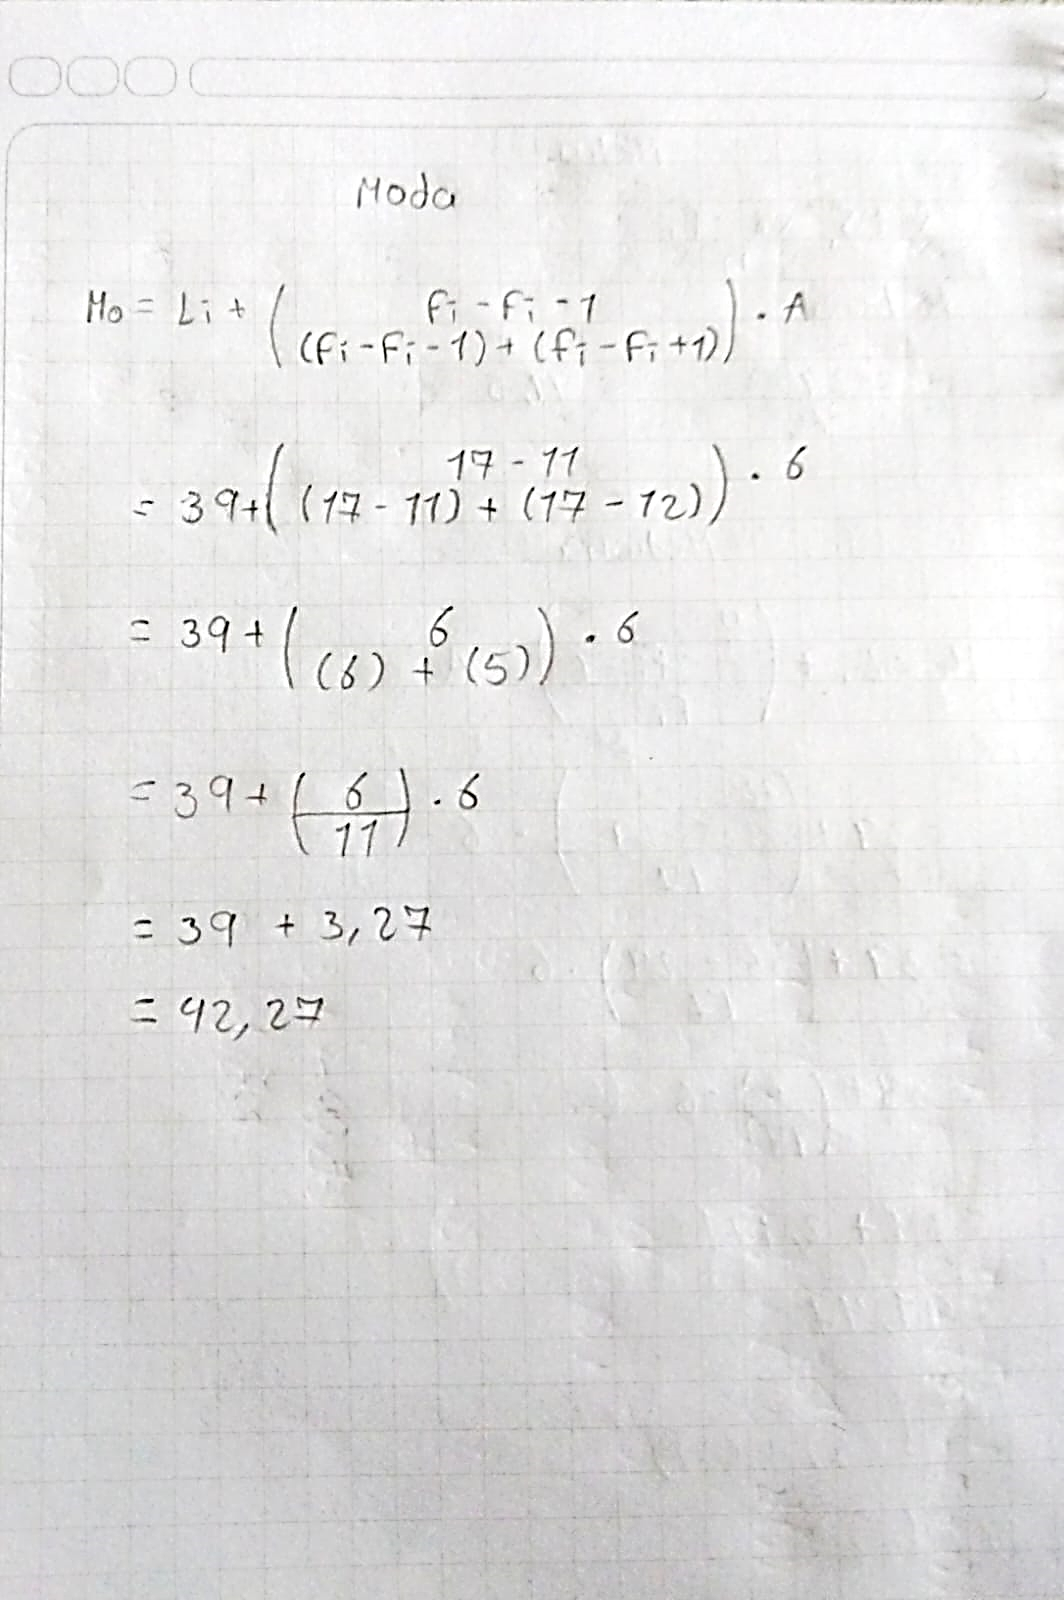 Moda
Mo = Li + ( fi - fi - 1
(fi - fi - 1) + (fi - fi + 1) ) . A
= 39 + ( 17 - 11
(17 - 11) + (17 - 12) ) . 6
= 39 + ( 6
(6) + (5) ) . 6
= 39 + ( 6 / 11 ) . 6
= 39 + 3,27
= 42,27